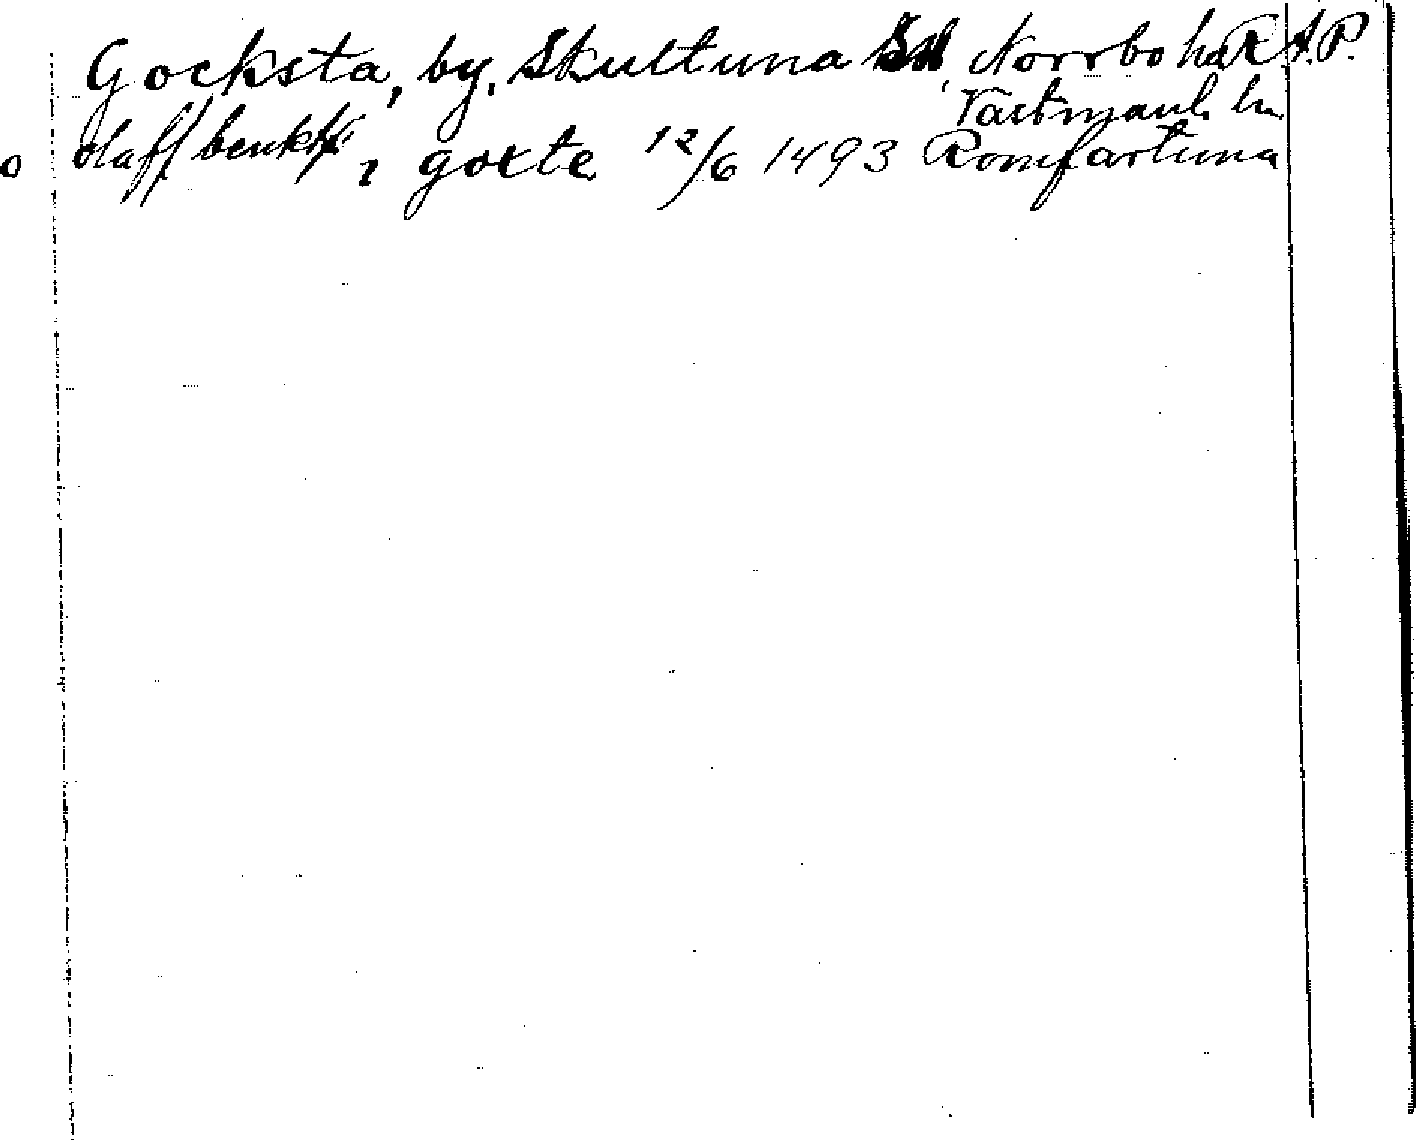 Gocksta, by, Skultuna Sn, Norrbo hd R.A.P.
Västmanl. ln
o olaff benktz i goxte 12/6 1493 Romfartuna